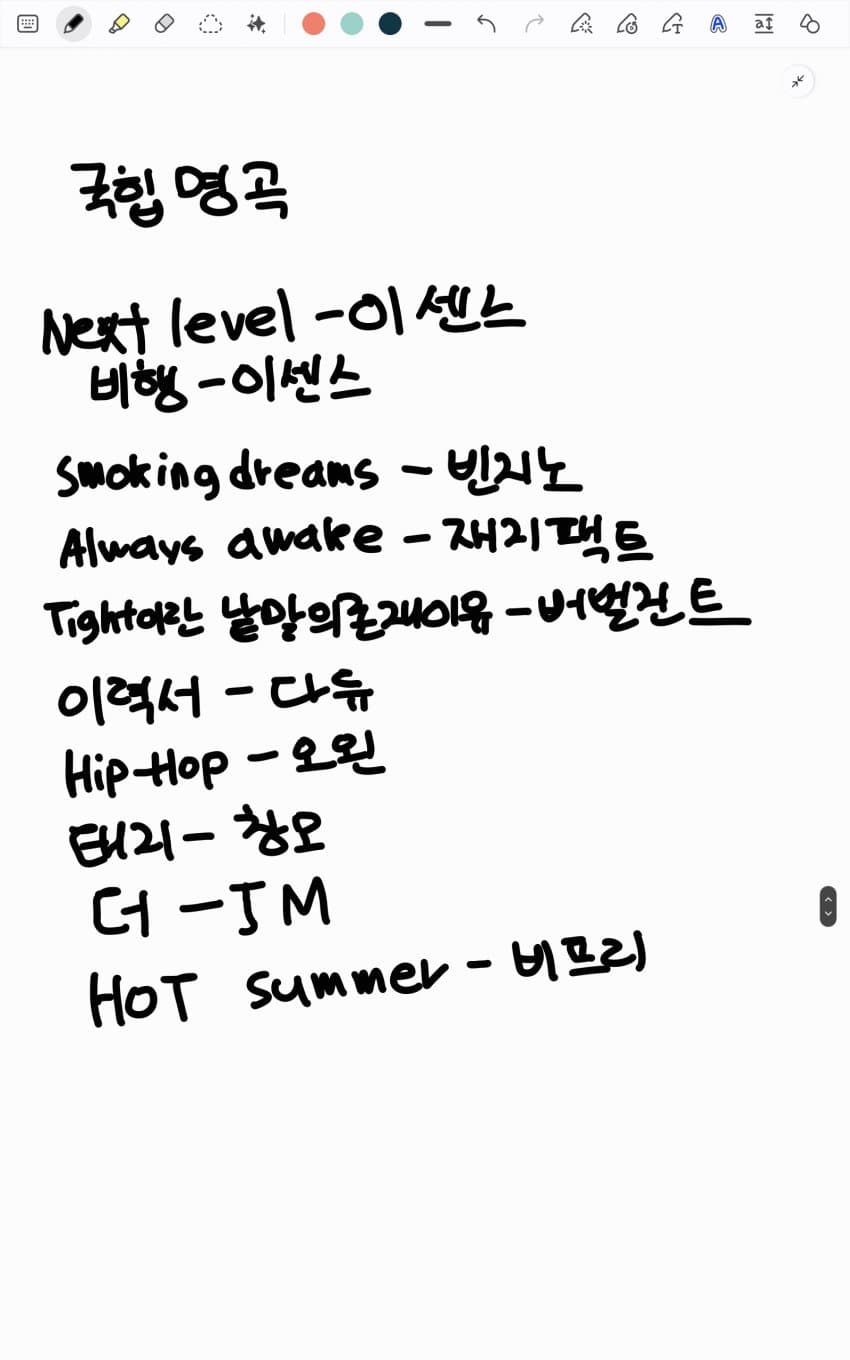 국힙 명곡
Next level - 이센스
비행 - 이센스
Smoking dreams - 빈지노
Always awake - 재지팩트
Tight이란 낱말의존재이유 - 버벌진트
이력서 - 다듀
Hip-Hop - 오왼
태지 - 창모
더 - JM
HOT summer - 비프리